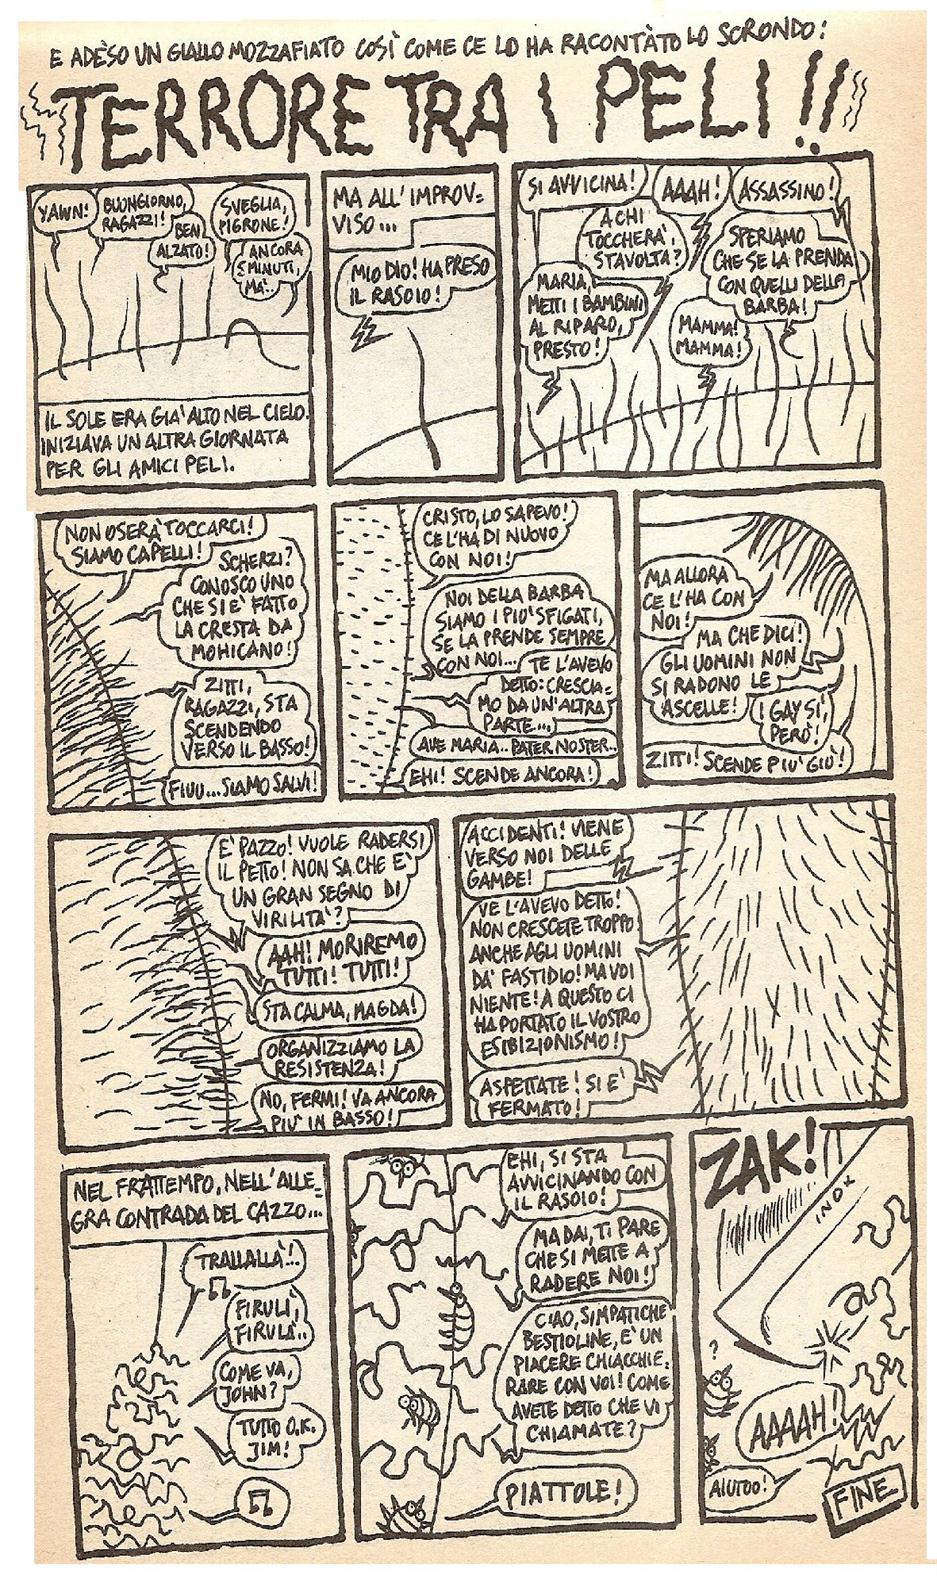 E ADÈSO UN GIALLO MOZZAFIATO COSÌ COME CE LO HA RACONTÀTO LO SCRONDO:
TERRORE TRA I PELI!!
YAWN!
BUONGIORNO,
RAGAZZI!
BEN
ALZATO!
SVEGLIA,
PIGRONE!
ANCORA
5 MINUTI,
MA'..
IL SOLE ERA GIA' ALTO NEL CIELO.
INIZIAVA UN ALTRA GIORNATA
PER GLI AMICI PELI.
MA ALL'IMPROV=
VISO...
MIO DIO! HA PRESO
IL RASOIO!
SI AVVICINA!
AAAH!
ASSASSINO!
A CHI
TOCCHERA',
STAVOLTA?
SPERIAMO
CHE SE LA PRENDA
CON QUELLI DELLA
BARBA!
MARIA,
METTI I BAMBINI
AL RIPARO,
PRESTO!
MAMMA!
MAMMA!
NON OSERA' TOCCARCI!
SIAMO CAPELLI!
SCHERZI?
CONOSCO UNO
CHE SI E' FATTO
LA CRESTA DA
MOHICANO!
ZITTI,
RAGAZZI, STA
SCENDENDO
VERSO IL BASSO!
FIUU...SIAMO SALVI!
CRISTO, LO SAPEVO!
CE L'HA DI NUOVO
CON NOI!
NOI DELLA BARBA
SIAMO I PIU' SFIGATI,
SE LA PRENDE SEMPRE
CON NOI...
TE L'AVEVO
DETTO: CRESCIA=
MO DA UN'ALTRA
PARTE...
AVE MARIA.. PATER NOSTER..
EHI! SCENDE ANCORA!
MA ALLORA
CE L'HA CON
NOI!
MA CHE DICI!
GLI UOMINI NON
SI RADONO LE
ASCELLE!
I GAY SI,
PERO'!
ZITTI! SCENDE PIU' GIU'!
E' PAZZO! VUOLE RADERSI
IL PETTO! NON SA CHE E'
UN GRAN SEGNO DI
VIRILITA'?
AAH! MORIREMO
TUTTI! TUTTI!
STA CALMA, MAGDA!
ORGANIZZIAMO LA
RESISTENZA!
NO, FERMI! VA ANCORA
PIU' IN BASSO!
ACCIDENTI! VIENE
VERSO NOI DELLE
GAMBE!
VE L'AVEVO DETTO!
NON CRESCETE TROPPO
ANCHE AGLI UOMINI
DA' FASTIDIO! MA VOI
NIENTE! A QUESTO CI
HA PORTATO IL VOSTRO
ESIBIZIONISMO!
ASPETTATE! SI E'
FERMATO!
NEL FRATTEMPO, NELL'ALLE=
GRA CONTRADA DEL CAZZO...
TRALLALLÀ!..
FIRULÌ,
FIRULÀ..
COME VA,
JOHN?
TUTTO O.K.
JIM!
EHI, SI STA
AVVICINANDO CON
IL RASOIO!
MA DAI, TI PARE
CHE SI METTE A
RADERE NOI!
CIAO, SIMPATICHE
BESTIOLINE, E' UN
PIACERE CHIACCHIE=
RARE CON VOI! COME
AVETE DETTO CHE VI
CHIAMATE?
PIATTOLE!
ZAK!
INOX
?
AAAAH!
AIUTOO!
FINE